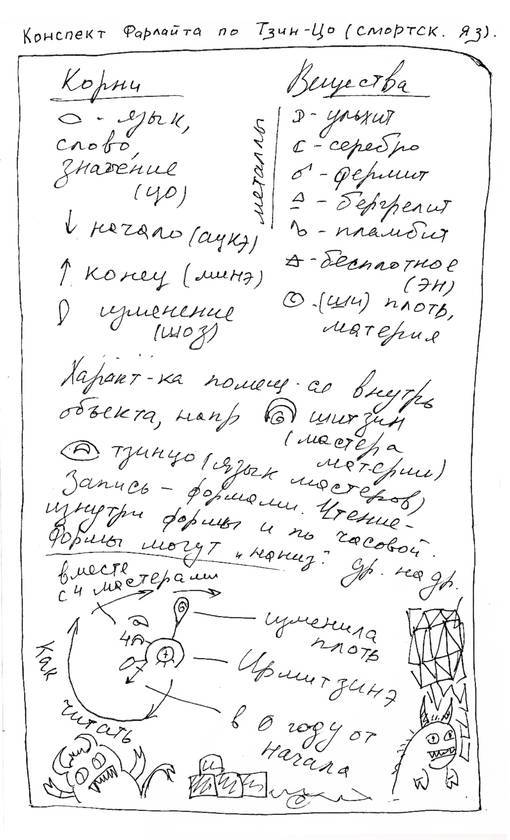 Конспект Фарлайта по Тзин-Цо (смортск. яз).
Корни
- язык,
слово,
значение
(цо)
↓ начало (аукэ)
↑ конец (минэ)
изменение
(шоз)
Вещества
металлы
- ульхит
- серебро
♂ - фермит
- бергрелит
- пламбит
- бесплотное
(эн)
(ши) плоть,
материя
Характ-ка помещ-ся внутрь
объекта, напр шитзин
(мастера
материи)
тзинцо (язык мастеров)
Запись - формами. Чтение -
изнутри формы и по часовой.
Формы могут "наниз." др. на др.
вместе
с 4 мастерами
4
0
как
читать
изменила
плоть
Ирмитзинэ
в 0 году от
начала